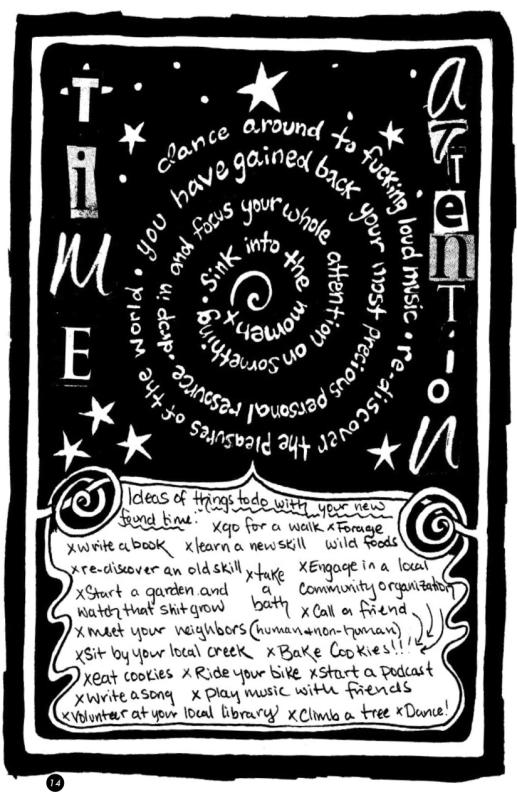 TiME
aTTenTion
dance around to fucking loud music • re-discover the pleasures of the world • you have gained back your most precious personal resource • drop in and focus your whole attention on something • Sink into the moment x
Ideas of things to do with your new
found time:
x go for a walk x Forage
wild foods
x write a book x learn a new skill
x re-discover an old skill
x take
a
bath
x Engage in a local
community organization
x Start a garden and
watch that shit grow
x Call a friend
x meet your neighbors (human + non-human)
x Sit by your local creek x Bake Cookies!!!
x eat cookies x Ride your bike x Start a podcast
x Write a song x play music with friends
x Volunteer at your local library x Climb a tree x Dance!
14